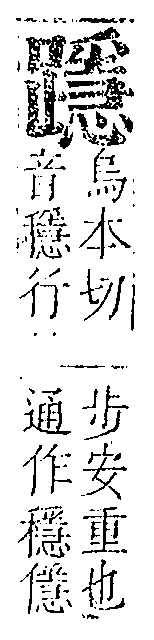 烏本切
音穩行
步安重也
通作穩㒚